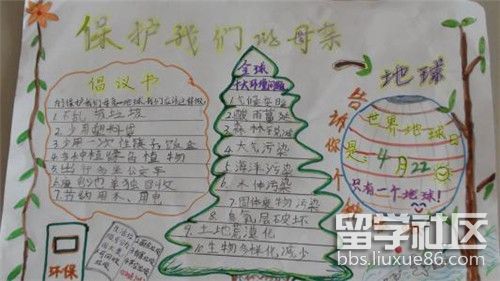 保护我们的母亲
倡议书
1.不乱扔垃圾
2.少用塑料袋
3.少用一次性筷子、饭盒
4.多种植绿色植物
5.出行多坐公交车
7.节约用水、用电
环保
全球
十大环境问题
1.气候变暖
4.大气污染
5.海洋污染
6.水体污染
7.固体废物污染
8.臭氧层破坏
9.土地荒漠化
10.生物多样化减少
地球
告诉你个
世界地球日
是:4月22
只有一个地球!
留学社区
bbs.liuxue86.com